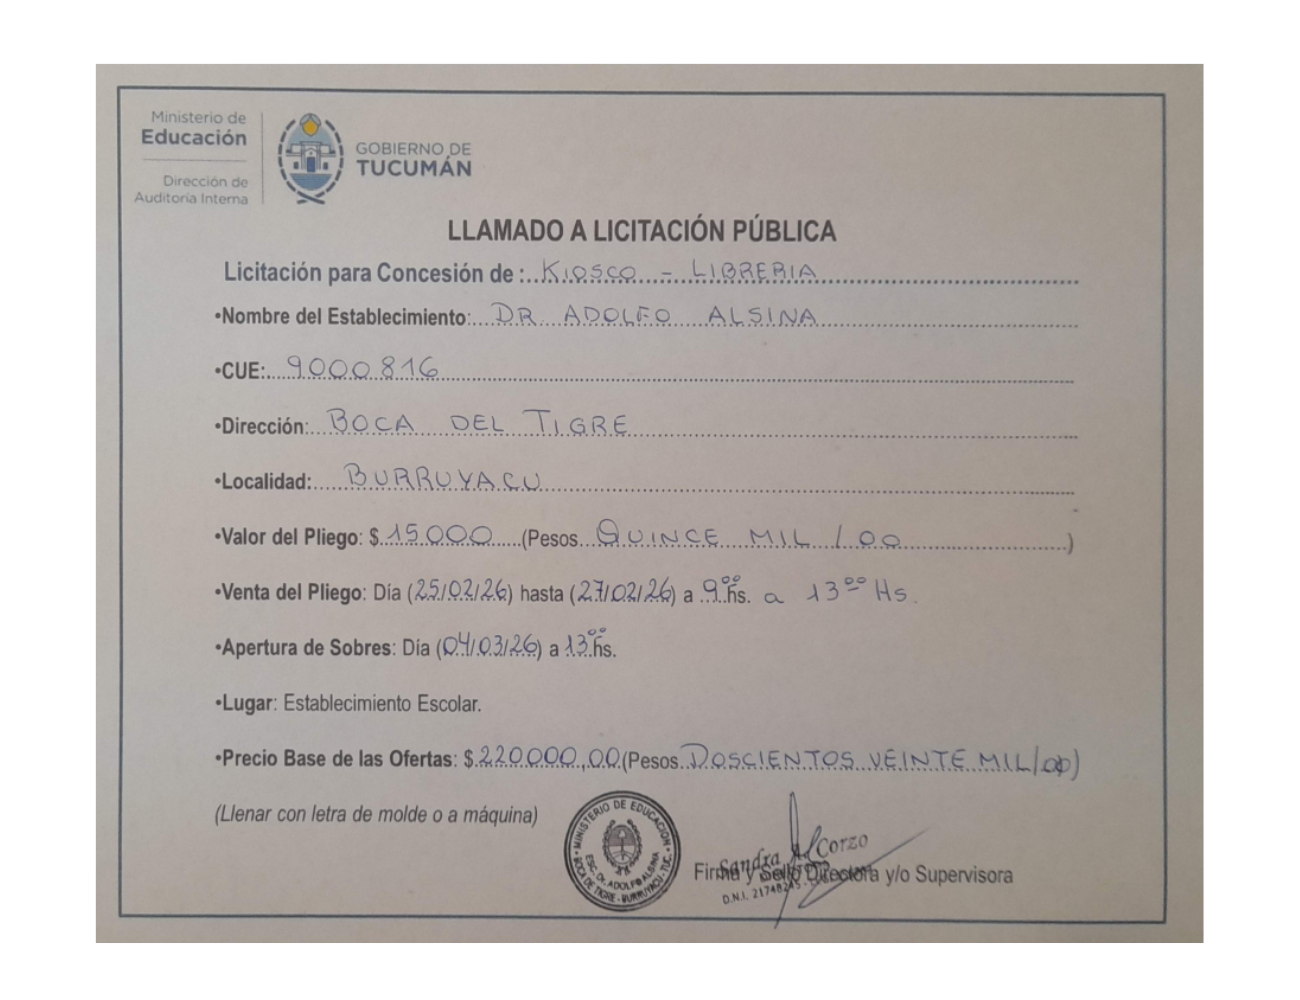 Ministerio de
Educación
Dirección de
Auditoría Interna
GOBIERNO DE
TUCUMÁN
LLAMADO A LICITACIÓN PÚBLICA
Licitación para Concesión de : KIOSCO - LIBRERIA
•Nombre del Establecimiento: DR ADOLFO ALSINA
•CUE: 9000816
•Dirección: BOCA DEL TIGRE
•Localidad: BURRUYACU
•Valor del Pliego: $ 15.000 (Pesos QUINCE MIL /00)
•Venta del Pliego: Día (25/02/26) hasta (27/02/26) a 9⁰⁰ hs. a 13⁰⁰ Hs.
•Apertura de Sobres: Día (04/03/26) a 13⁰⁰ hs.
•Lugar: Establecimiento Escolar.
•Precio Base de las Ofertas: $ 220000,00 (Pesos DOSCIENTOS VEINTE MIL/00)
(Llenar con letra de molde o a máquina)
MINISTERIO DE EDUCACIÓN
ESC. Dr. ADOLFO ALSINA
BOCA DE TIGRE - BURRUYACU - TUC.
Sandra Alcorzo
Firma y Sello Directora y/o Supervisora
D.N.I.